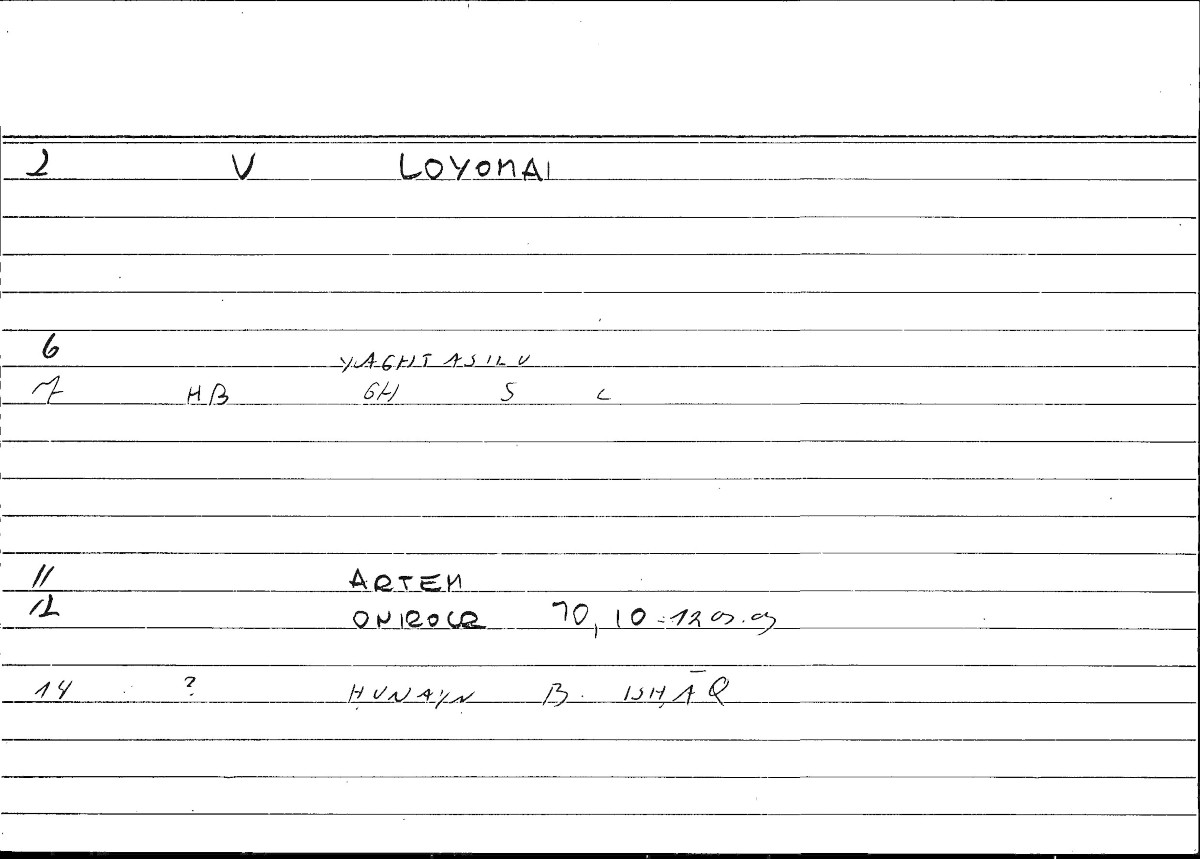 2 V LOYOMAI
6 YAGHTASILU
7 HB GH S C
11 ARTEM
12 ONIROCR 70, 10-12
14 ? ḤUNAYN B. ISḤĀQ